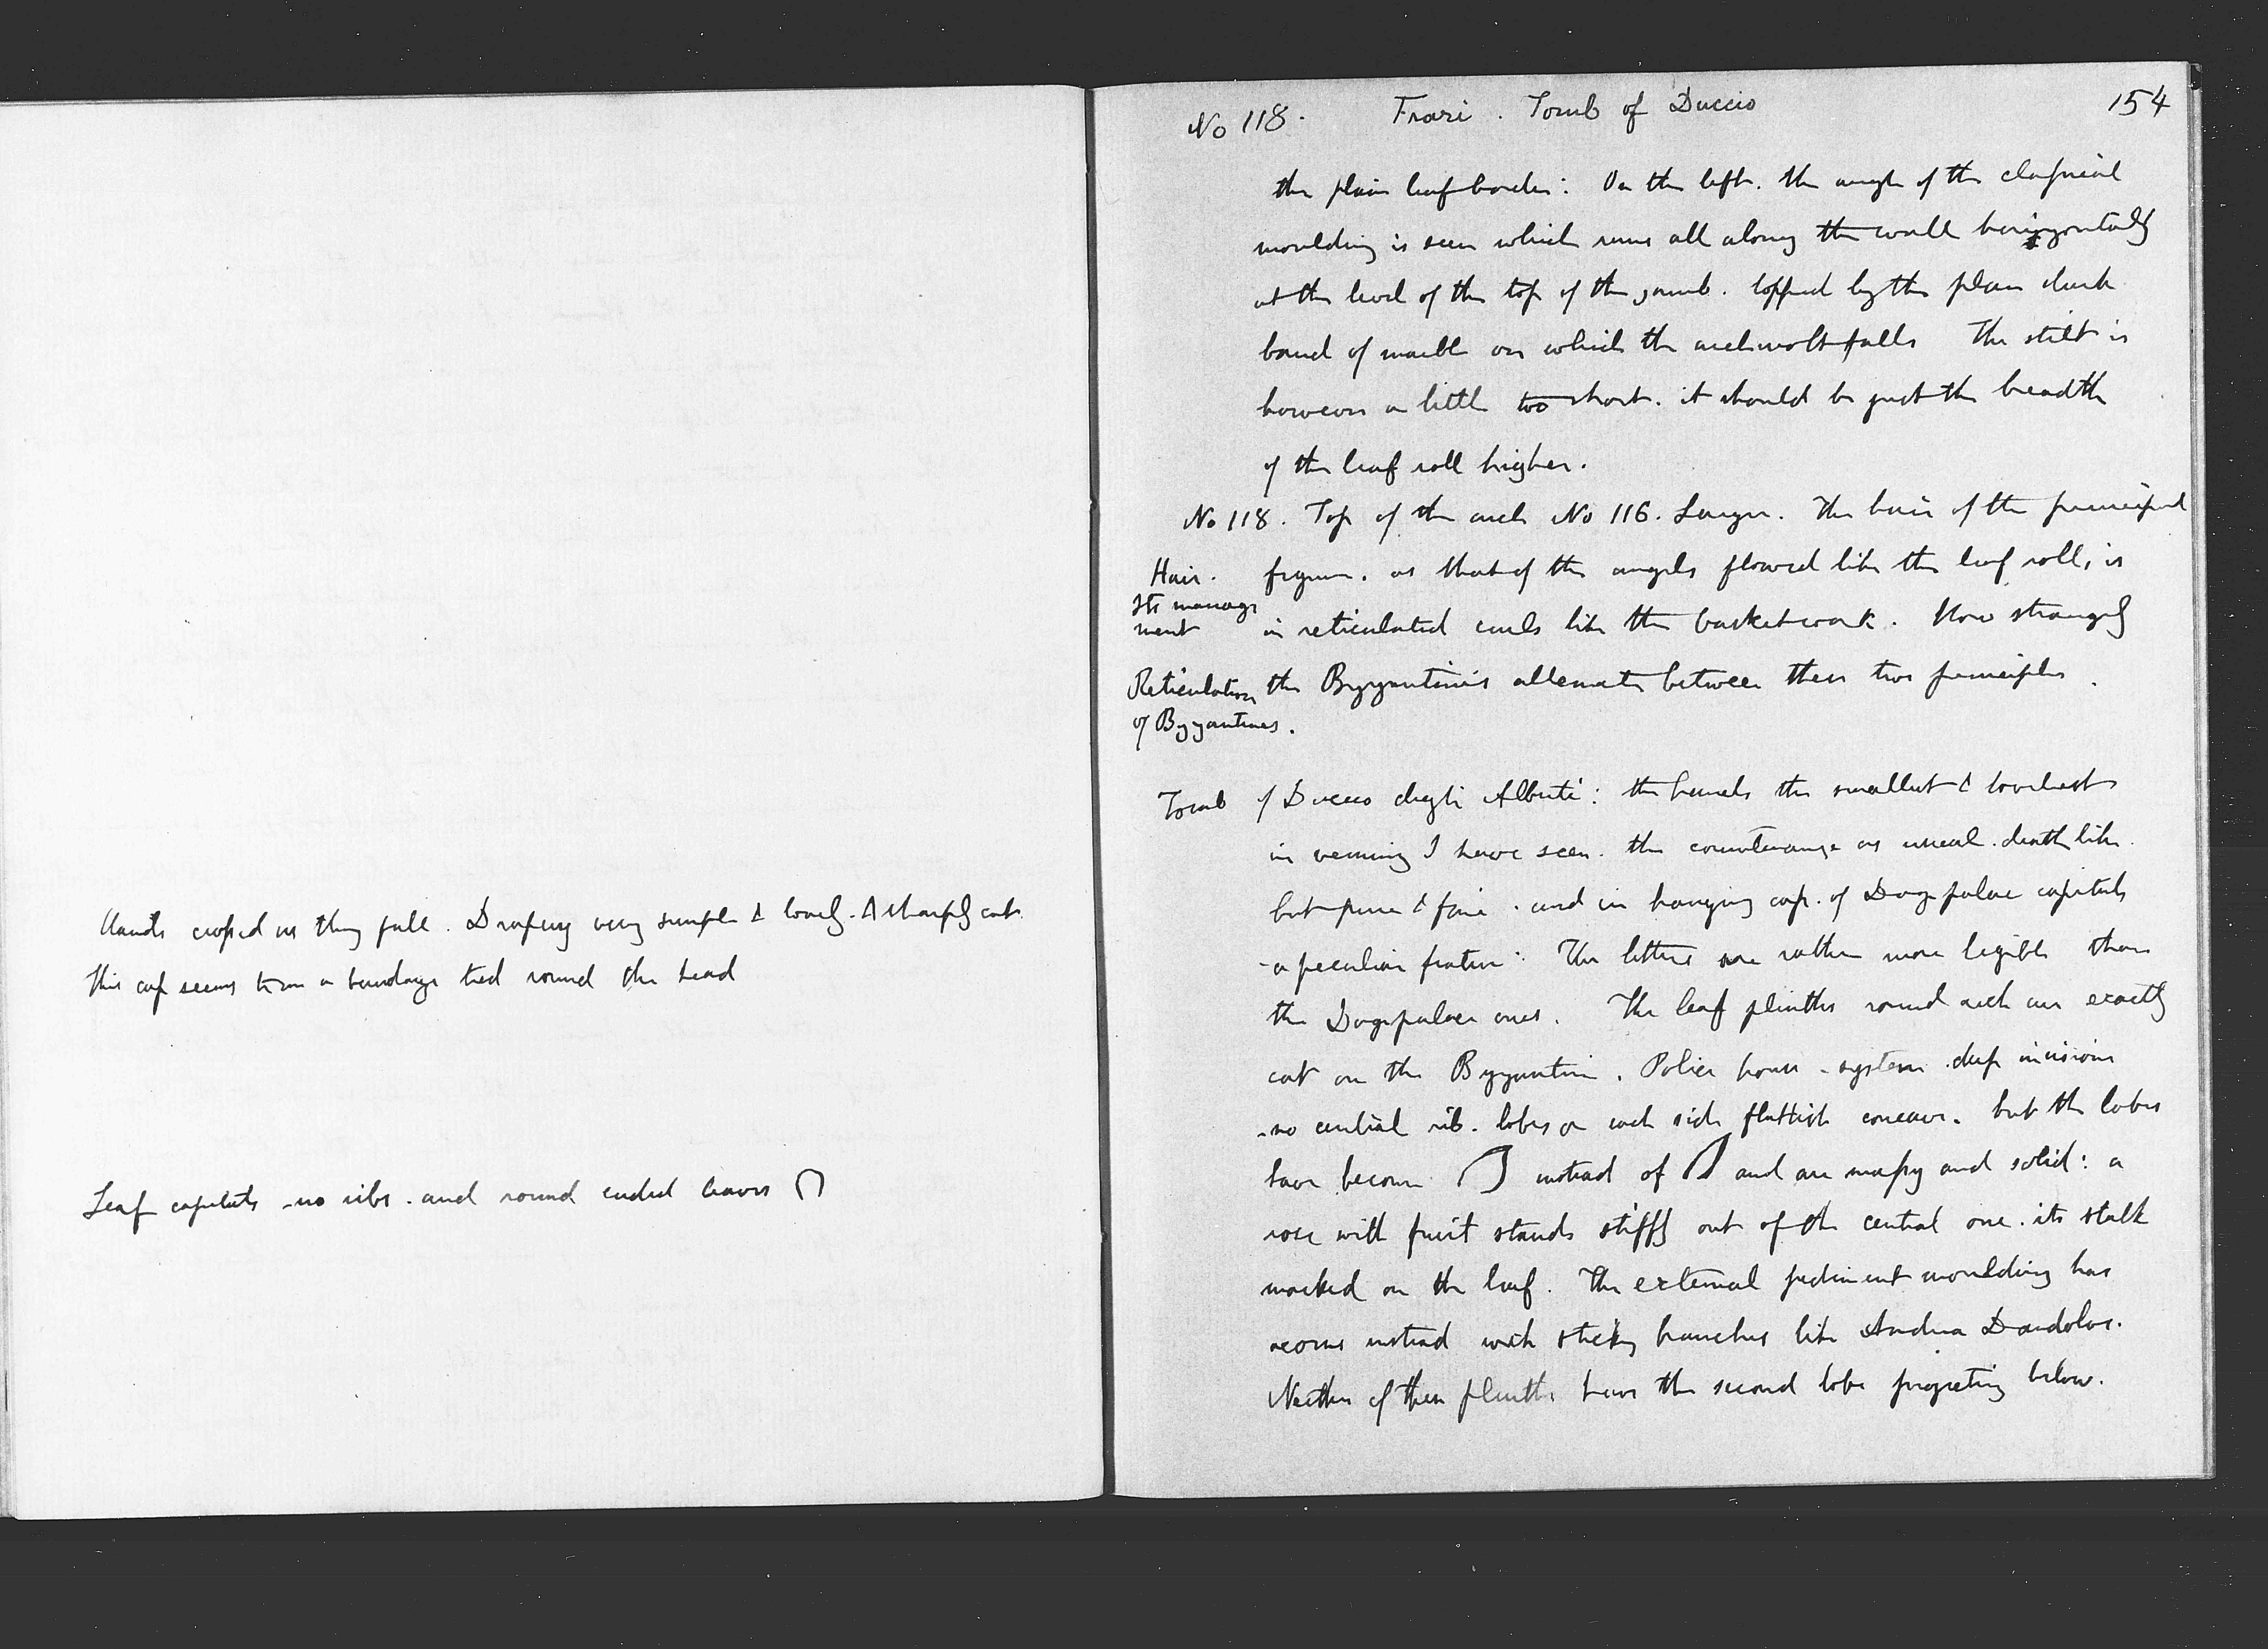 Hands crossed as they fall. Drapery very simple & lovely. & sharply cut.
this cap seems to me a bandage tied round the head
Leaf capitals - no ribs. and round ended leaves
No 118. Frari. Tomb of Duccio 154
the plain leaf border: On the left. the angle of the classical
moulding is seen which runs all along the wall horizontally
at the level of the top of the jamb. topped by the plain dark
band of marble on which the archivolt falls The stilt is
however a little too short. it should be just the breadth
of the leaf roll higher.
No 118. Top of the arch No 116. Larger. The hair of the principal
Hair. figure. as that of the angels flowed like the leaf roll, is
Its manage
ment in reticulated curls like the basketwork. How strangely
Reticulation the Byzantines alternate between these two principles.
of Byzantines.
Tomb of Duccio degli Alberti: the hands the smallest & loveliest
in I have seen. the countenance as usual. deathlike.
but pure & fine. and in hanging cap. of Doge palace capitals
- a peculiar feature: The letters are rather more legible than
the Doge palace ones. The leaf plinths round arch are exactly
cut on the Byzantine. Police house - system. deep incisions
- no central rib. lobes on each side flattish concave. but the lobes
have become instead of and are massy and solid: a
rose with fruit stands stiffly out of the central one. its stalk
marked on the leaf. The external pediment moulding has
acorns instead with sticky branches like Andrea Dandolos.
Neither of these plinths have the second lobe projecting below.